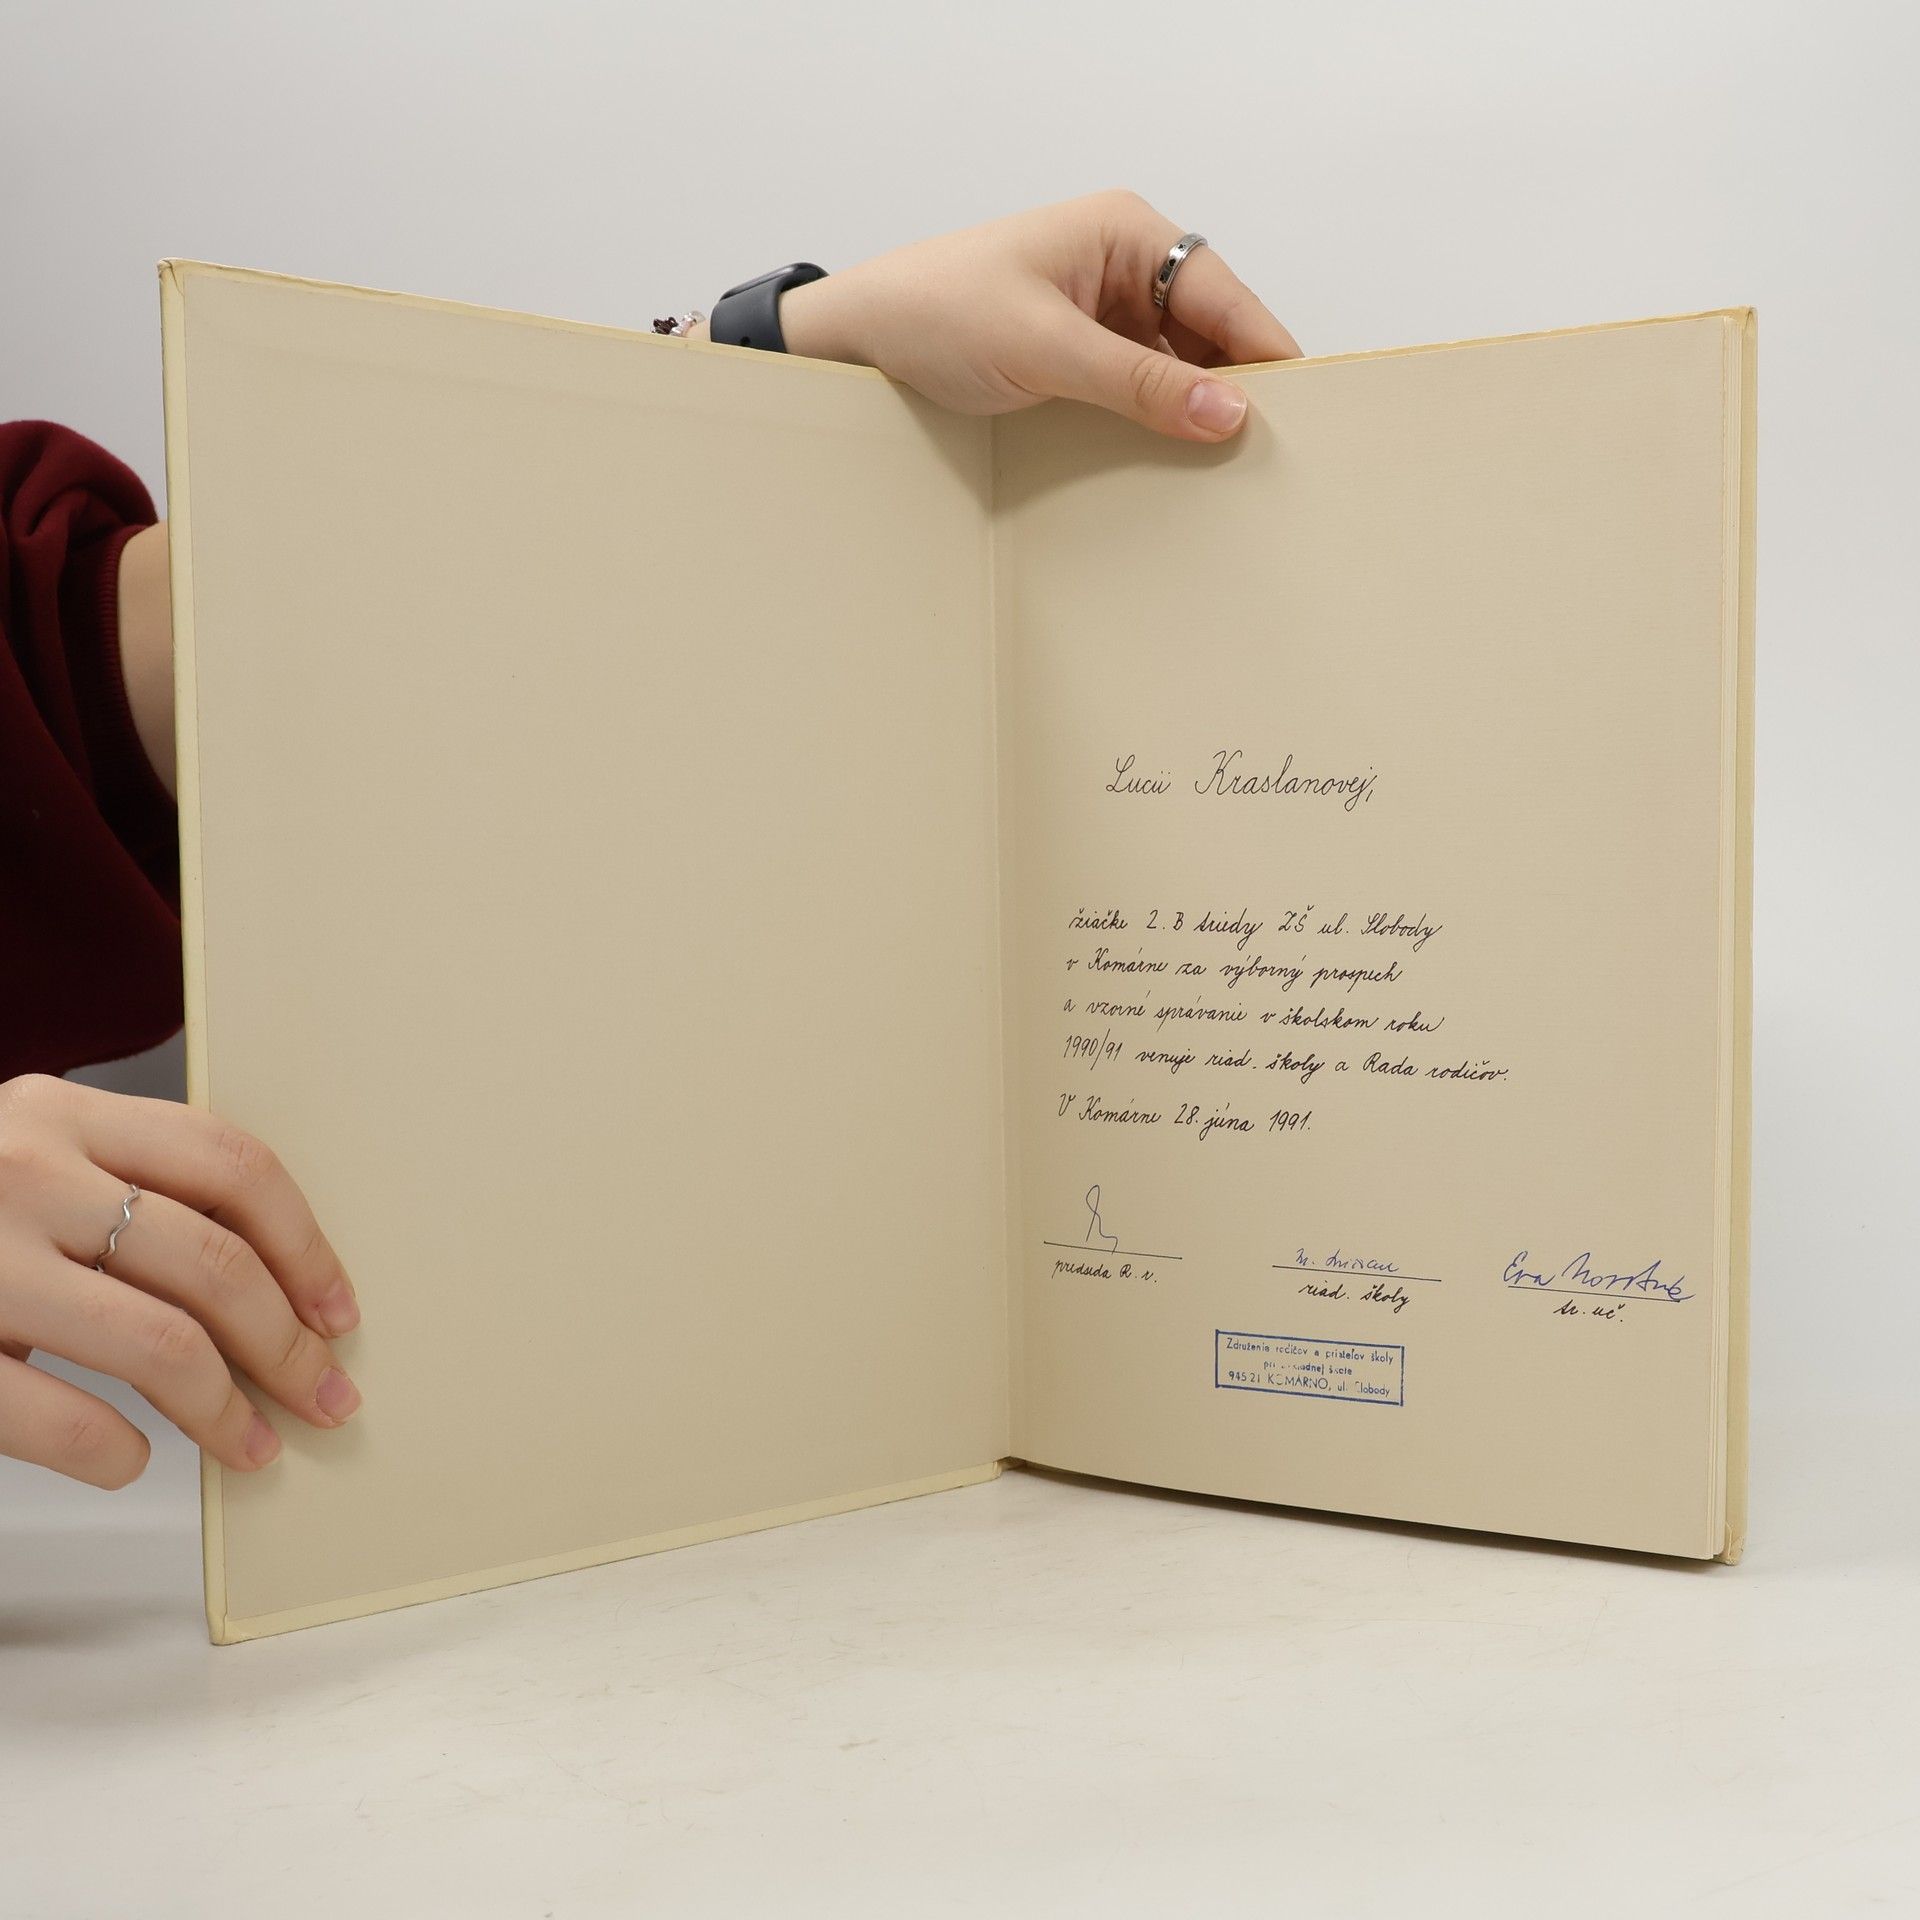 Lucii Kraslanovej,
žiačke 2. B triedy ZŠ ul. Slobody
v Komárne za výborný prospech
a vzorné správanie v školskom roku
1990/91 venuje riad. školy a Rada rodičov.
V Komárne 28. júna 1991.
Eva
predseda R. r.
riad. školy
tr. uč.
Združenie rodičov a priateľov školy
pri základnej škole
945 21 KOMÁRNO, ul. Slobody